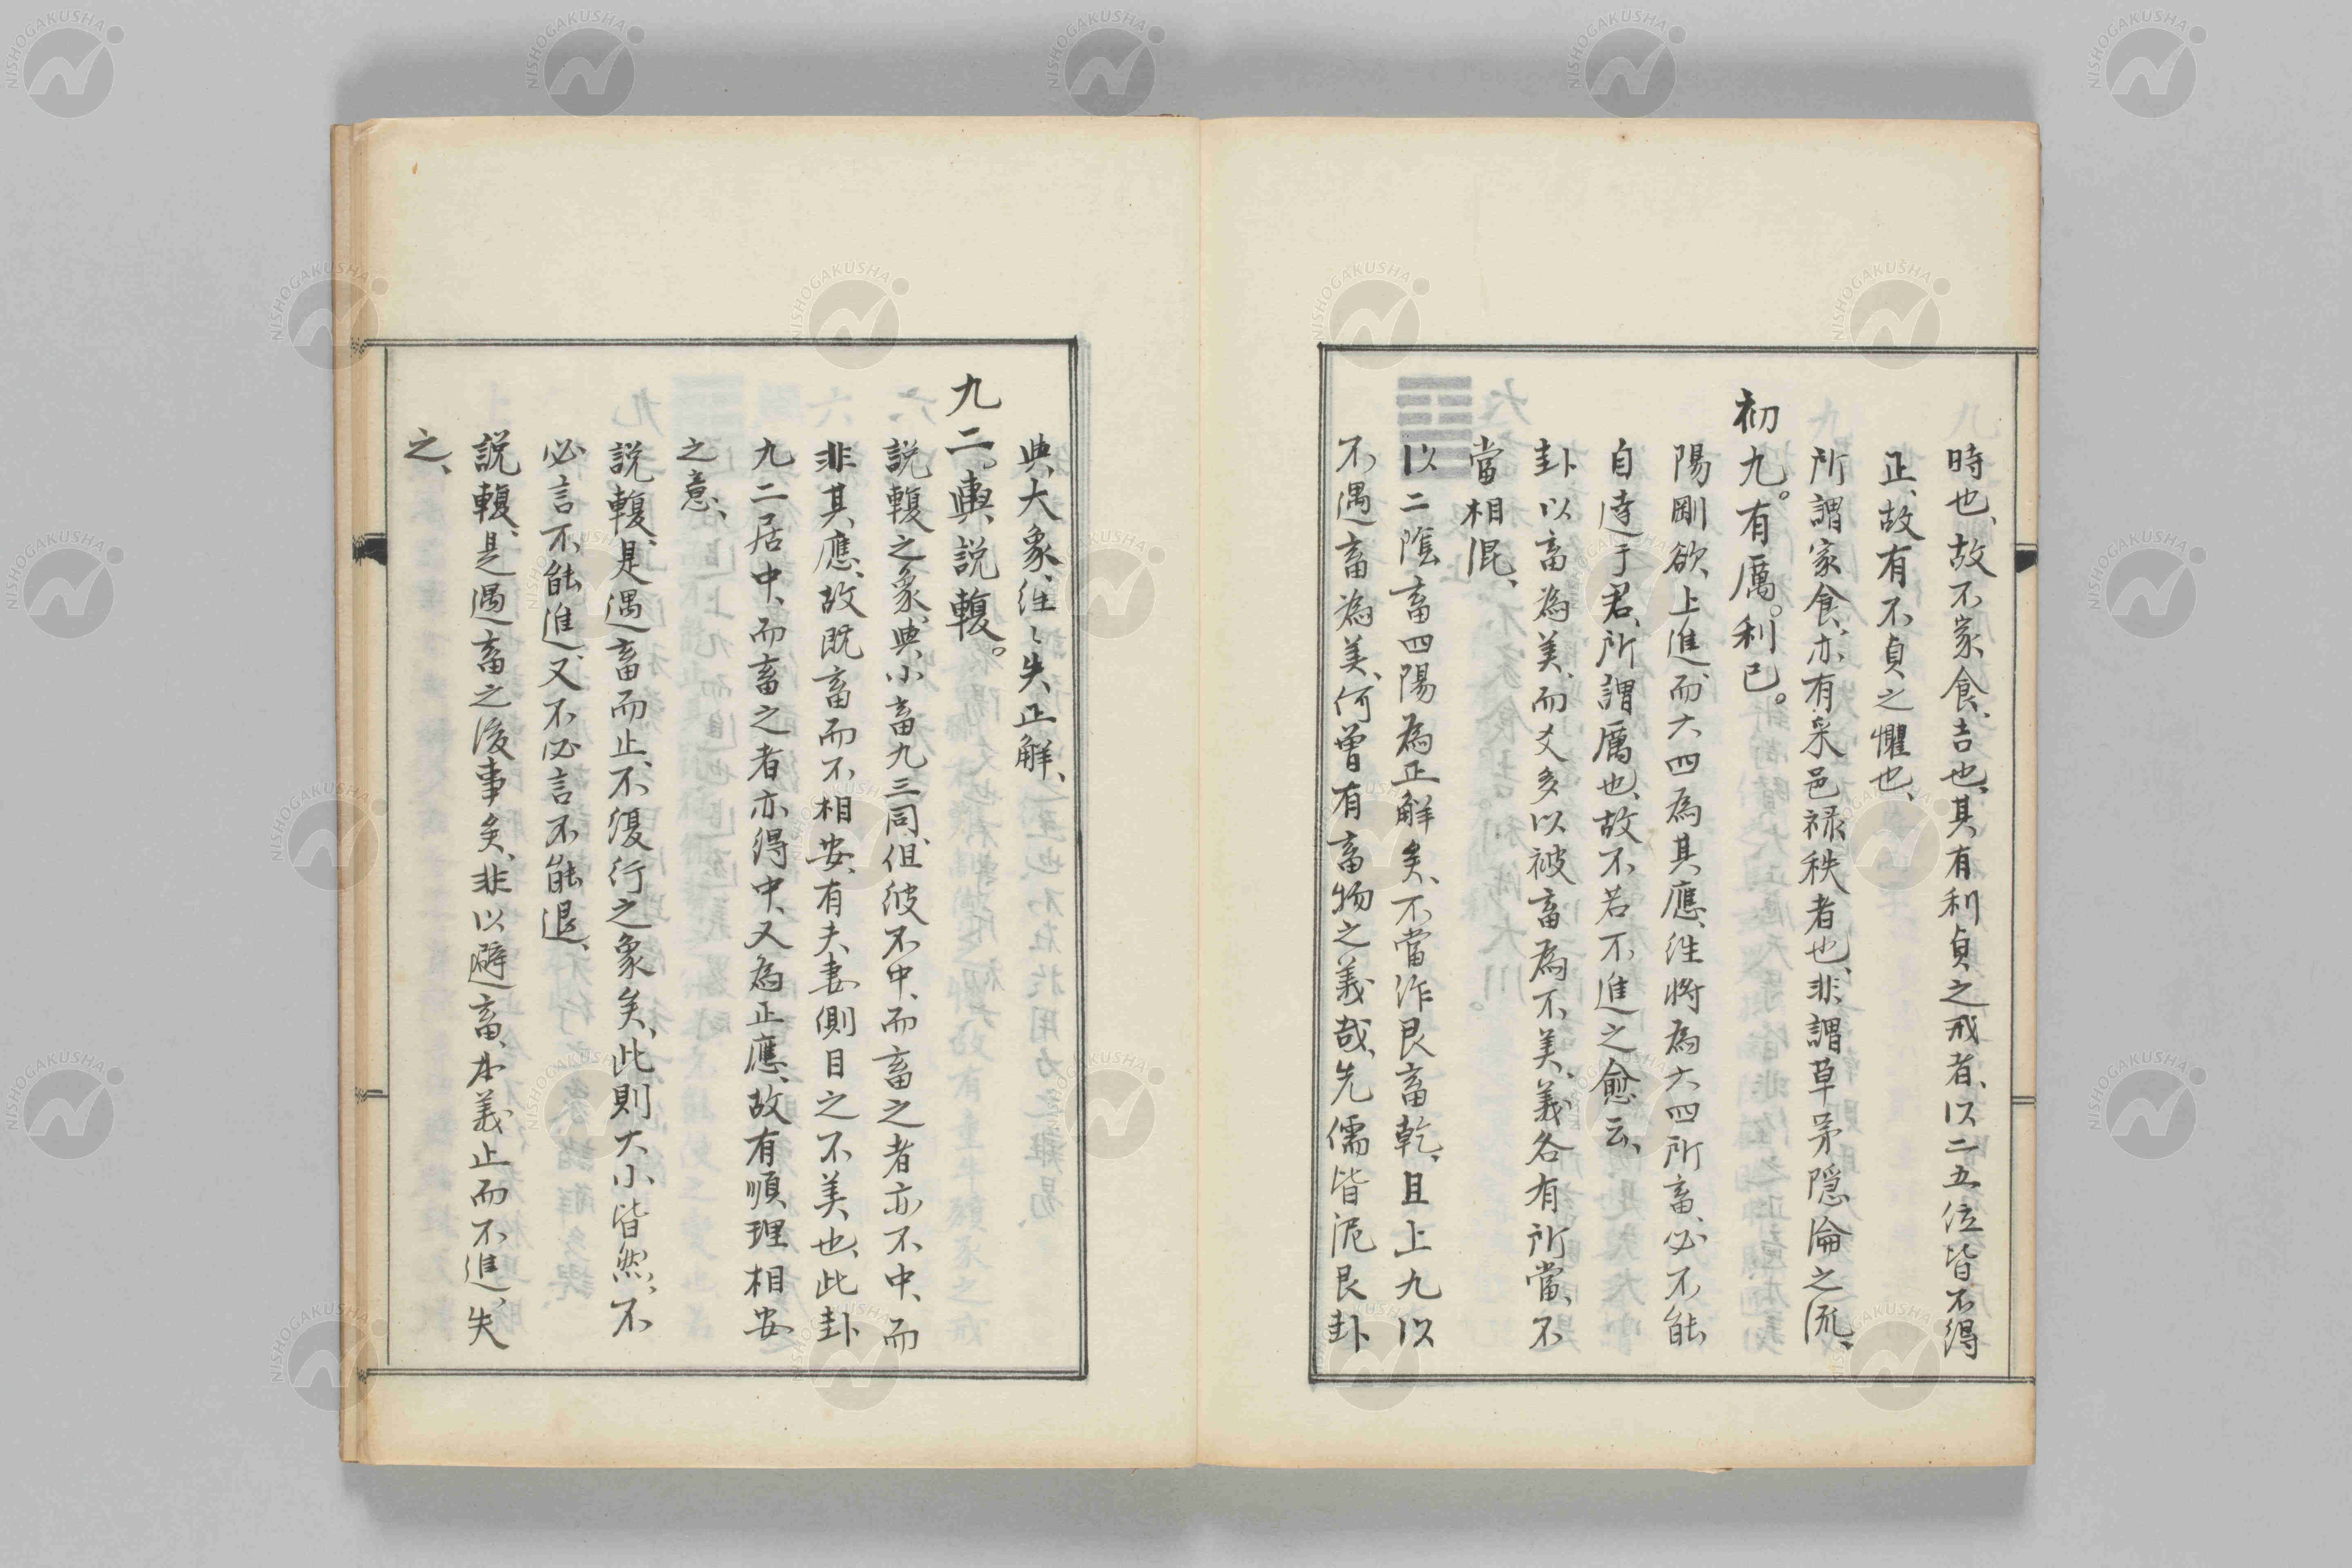 時也、故不家食、吉也、其有利貞之戒者、以二五位皆不得
正、故有不貞之懼也、
所謂家食、亦有采邑禄秩者也、非謂草茅隠淪之流、
初九。有厲。利已。
陽剛欲上進、而六四為其應、往将為六四所畜、必不能
自達于君、所謂厲也、故不若不進之愈云、
卦以畜為美、而爻多以被畜為不美、義各有所當、不
當相混、
以二陰畜四陽為正解矣、不當作艮畜乾、且上九以
不遇畜為美、何曽有畜物之義哉、先儒皆泥艮卦
典大象、往〻失正解、
九二。輿説輹。
説輹之象、典小畜九三同、但彼不中、而畜之者亦不中、而
非其應、故既畜而不相安、有夫妻側目之不美也、此卦
九二居中、而畜之者亦得中、又為正應、故有順理相安
之意、
説輹、是遇畜而止、不復行之象矣、此則大小皆然、不
必言不能進、又不必言不能退、
説輹、是遇畜之後事矣、非以避畜、本義止而不進、失
之、
NISHOGAKUSHA